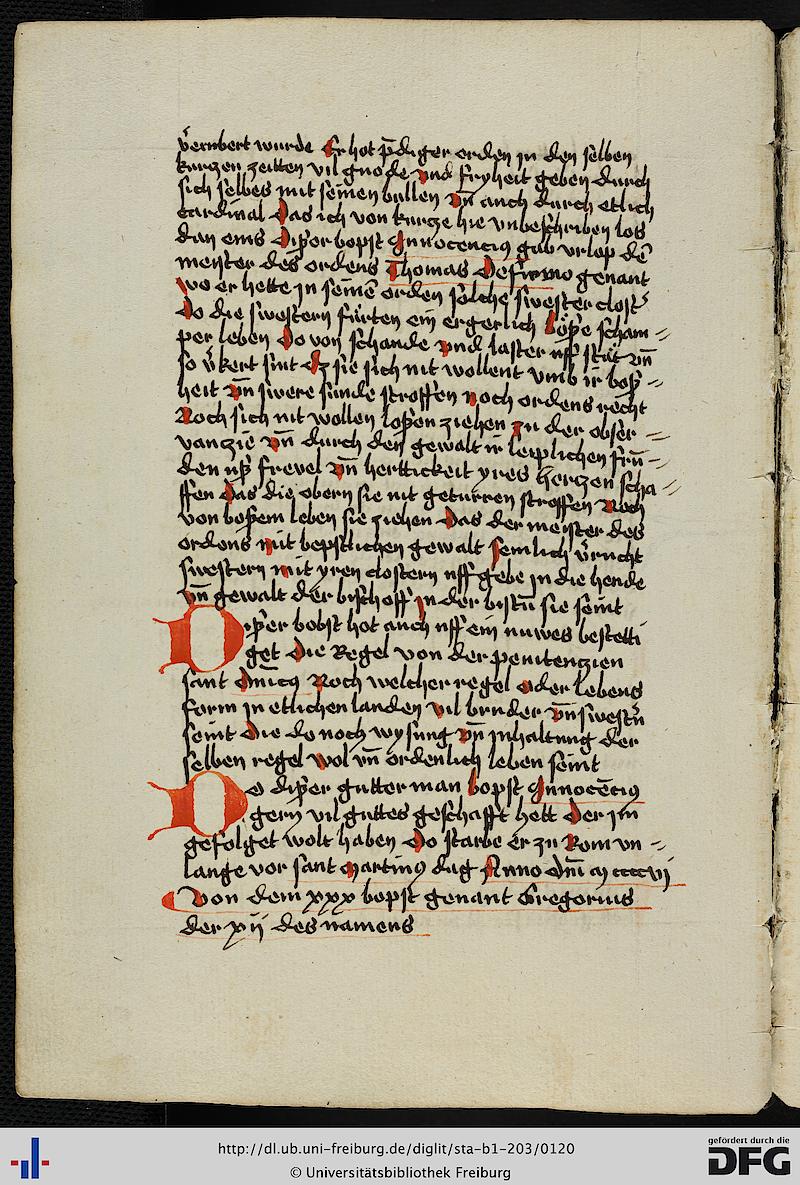 v̄ernbert wurde Er hot p̄diger orden jn den selben
kurzen zeitten vil gnode vnd fryheit geben durch
sich selbes mit seinen bullen vn̄ auch durch etlich
cardinal Das ich von kurze hie vnbeschriben los
dan eins Dißer bopst Innocencius gab vrlop dē
meister des ordens Thomas De firmo genant
wo er hette jn seinē orden solche swester clost᷑
Do die swestern fürten ein ergerlich bößE scham-
per leben Do von schande vnd laster uff stat vn̄
so v̄kert sint Dz sie sich nit wollent vmb ir boß-
heit vn̄ swere sunde stroffen noch ordens recht
Noch sich nit wollen loßen ziehen zu der obser-
vanzie vn̄ durch den gewalt ir leiplichen frū-
den uß frevel vn̄ herttickeit yres herzen scha-
ffen Das die obern sie nit geturren stroffen Noch
von boßem leben sie ziehen Das der meister des
ordens mit bepstlichen gewalt semlich v̄rucht
swestern mit yren clostern uff gebe jn die hende
vn̄ gewalt der bischoff jn der bistū sie seint
Dißer bobst hot auch uff ein nuwes bestetti
get Die Regel von der penitenzien
sant Dn̄icus Noch welcher regel oder lebens
form jn etlichen landen vil bruder vn̄ swest᷑n
seint Die do noch wysung vn̄ jnhaltung der
selben regel wol vn̄ ordenlich leben seint
Do dißer gutter man bopst Innocēcius
gern vil guttes geschafft hett Der jm
gefolget wolt haben Do starbe Er zu Rom vn-
lange vor sant martinus dag Anno dn̄i m ccccvj
Von dem xxx bopst genant Gregorius
der xij des namens
http://dl.ub.uni-freiburg.de/diglit/sta-b1-203/0120
© Universitätsbibliothek Freiburg
gefördert durch die
DFG